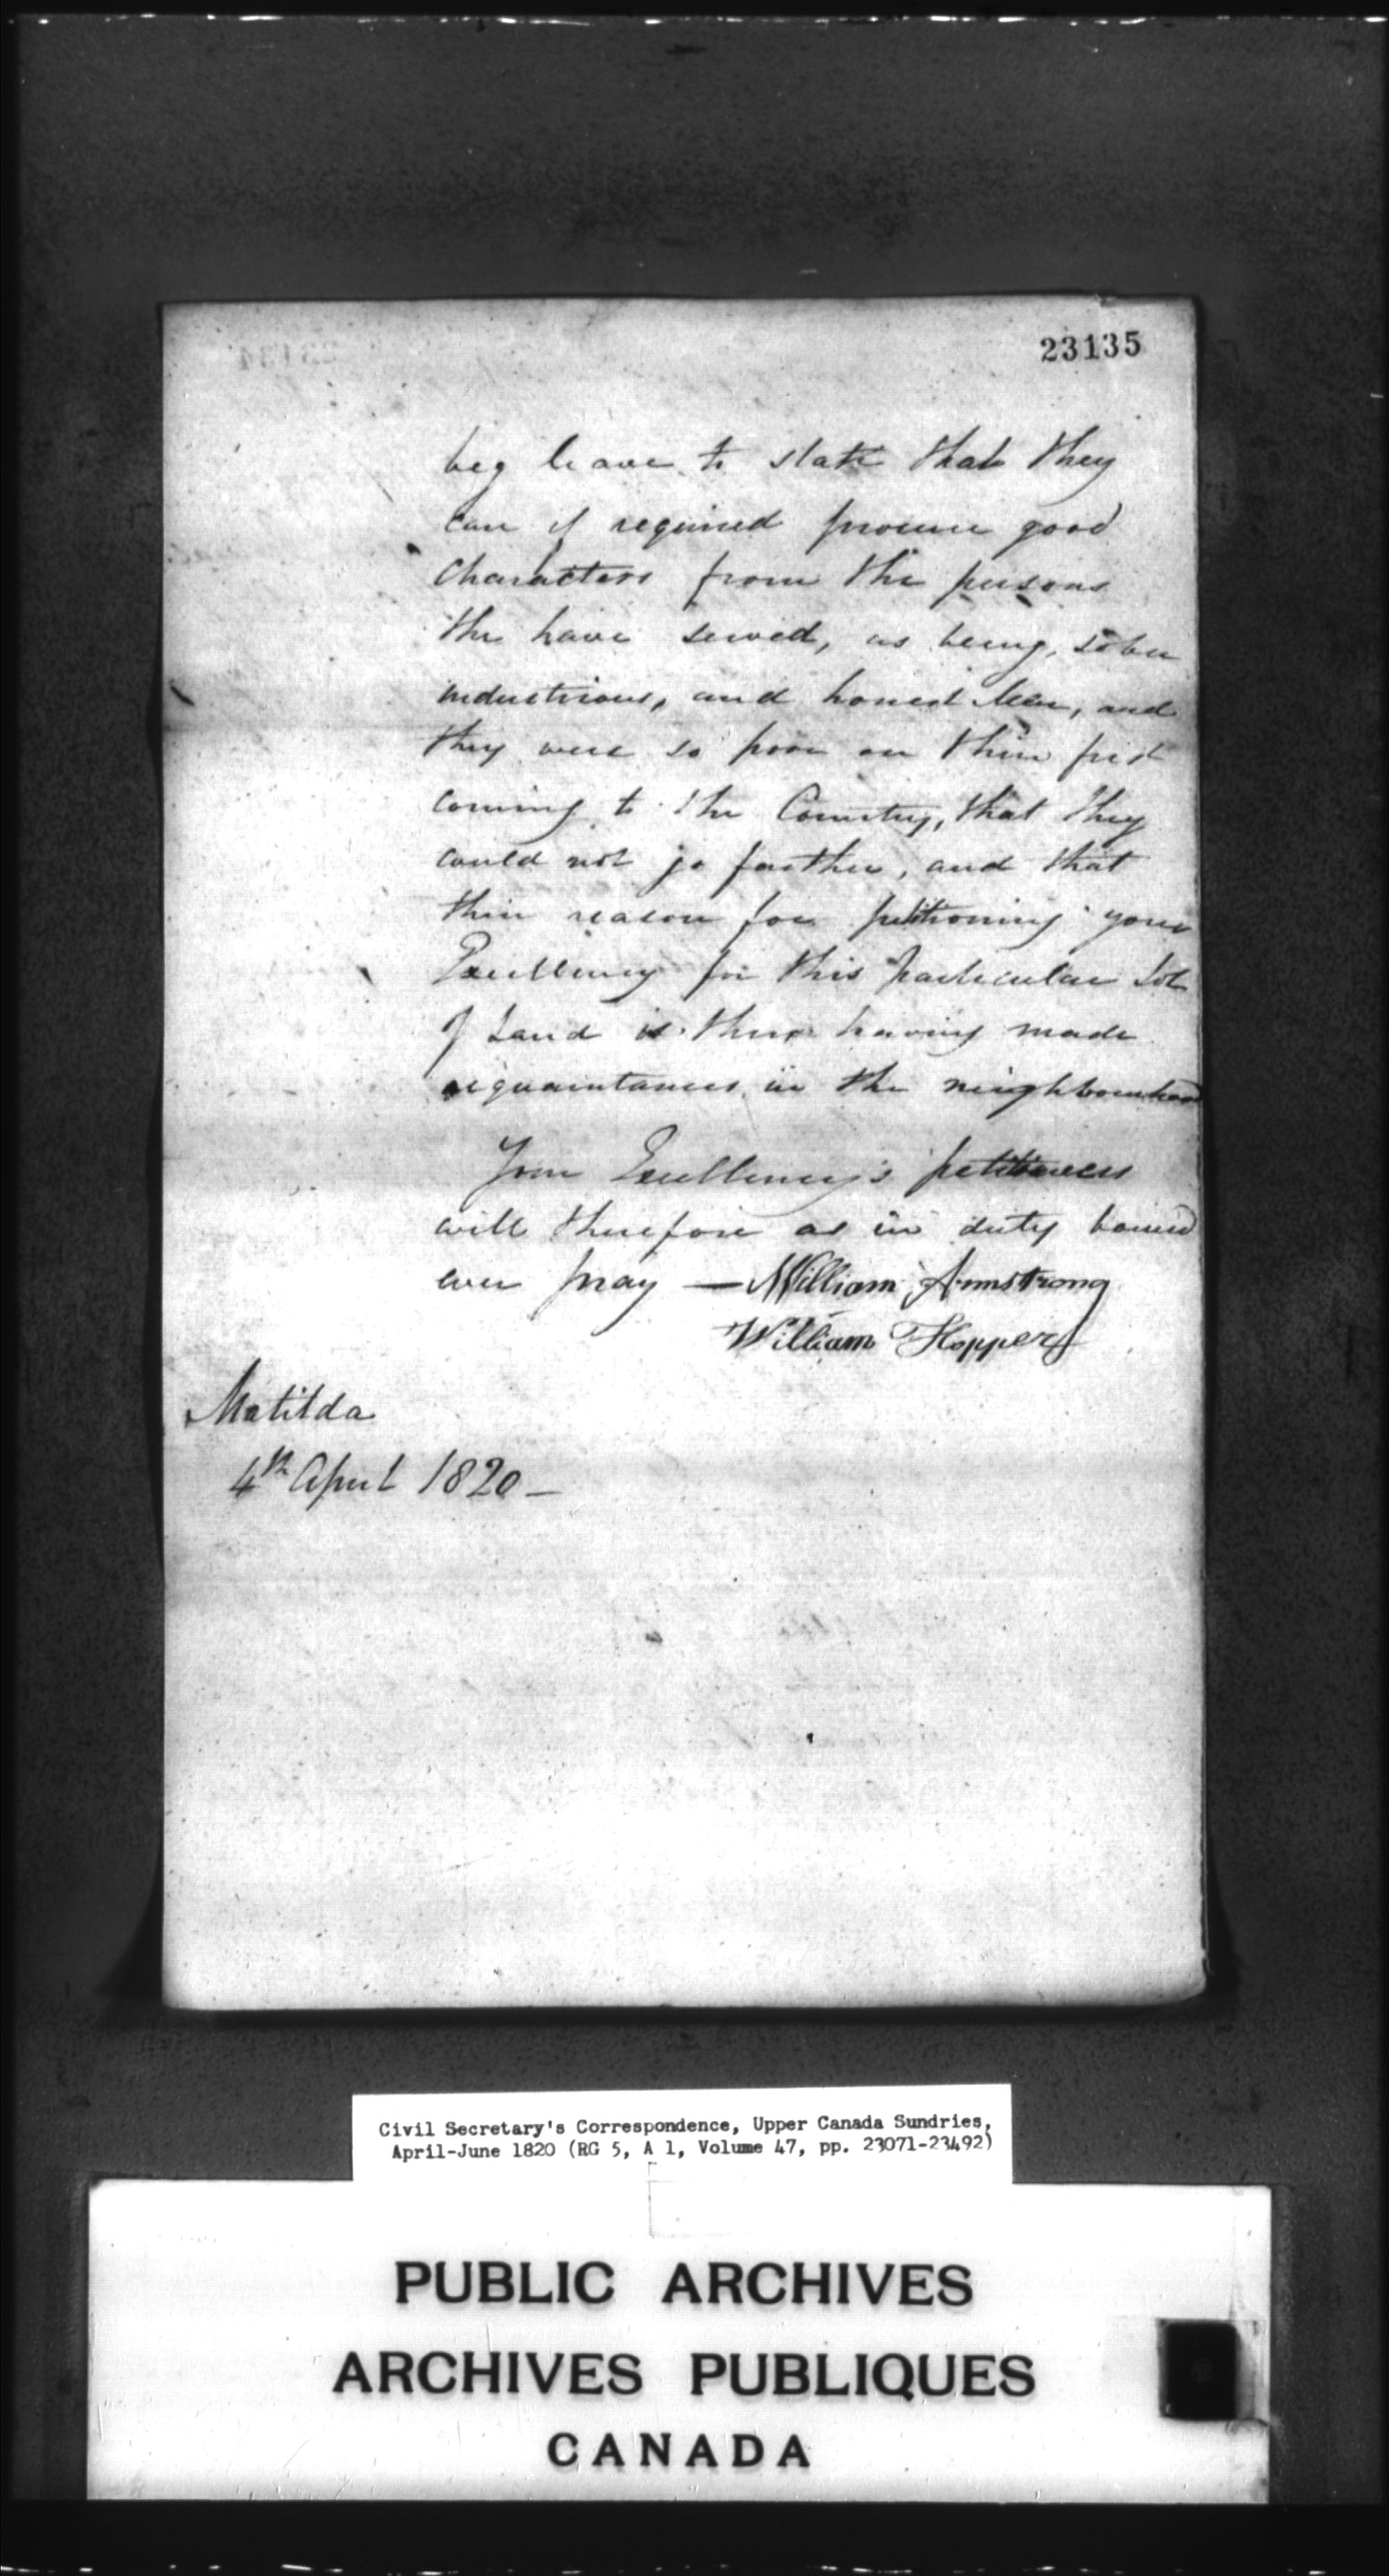 23135
beg leave to state that they
can if required procure good
Characters from the persons
the have served, as being, sober
industrious, and honest Men, and
they were so poor on their first
coming to the Country, that they
could not go farther, and that
their reason for petitioning your
Excellency for this particular Lot
of Land is their having made
acquaintances in the neighbourhood
Your Excellency's petitioners
will therefore as in duty bound
ever pray — William Armstrong
William Hopper
Matilda
4th April 1820 —
Civil Secretary's Correspondence, Upper Canada Sundries,
April-June 1820 (RG 5, A 1, Volume 47, pp. 23071-23492)
PUBLIC ARCHIVES
ARCHIVES PUBLIQUES
CANADA